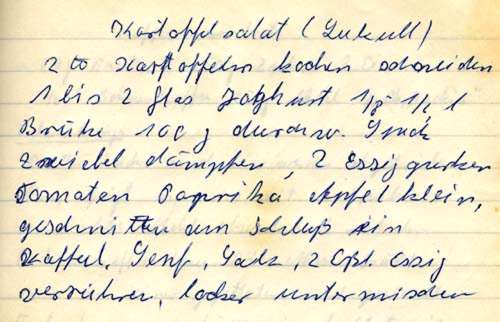 Kartoffelsalat (Lukull)
2 ℔ Kartoffeln kochen schneiden
1 bis 2 Glas Joghurt 1/8 - 1/4 l
Brühe 100 g durchw. Speck
zwiebel dämpfen, 2 Essiggurken
Tomaten Paprika Apfel klein,
geschnitten am Schluß ein
Kaffeel. Senf, Salz, 2 Eßl. Essig
verrühren, locker untermischen